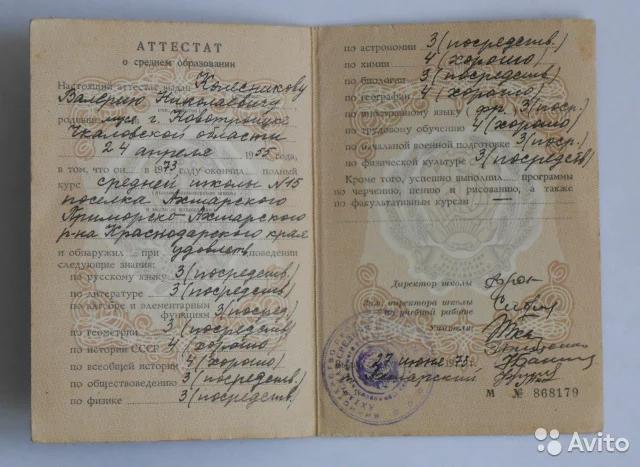 АТТЕСТАТ
о среднем образовании
Настоящий аттестат выдан Колесникову
Валерию Николаевичу
родивш муся г. Новотроицке
Чкаловской области
24 апреля 1955 года,
в том, что он в 1973 году окончил полный
курс средней школы №15
поселка Ахтарского
Приморско-Ахтарского
р-на Краснодарского края
и обнаружил при удовлетв. поведении
следующие знания:
по русскому языку 3 (посредств.)
по литературе 3 (посредств)
по алгебре и элементарным
функциям 3 (посред)
по геометрии 3 (посредств.)
по истории СССР 4 (хорошо
по всеобщей истории 4 (хорошо)
по обществоведению 3 (посредств.
по физике 3 (посредств.)
по астрономии 3 (посредств.)
по химии 4 (хорошо)
по биологии 3 (посредств)
по географии 4 (хорошо)
по иностранному языку (фр. 3 (пос.)
по трудовому обучению 4 (хорошо)
по начальной военной подготовке 3 (поср.)
по физической культуре 3 (посредств)
Кроме того, успешно выполнил программы
по черчению, пению и рисованию, а также
по факультативным курсам —
Директор школы
Зам. директора школы
по учебной работе
Учителя:
27 июня 1973
Ахтарский
М № 868179
Avito